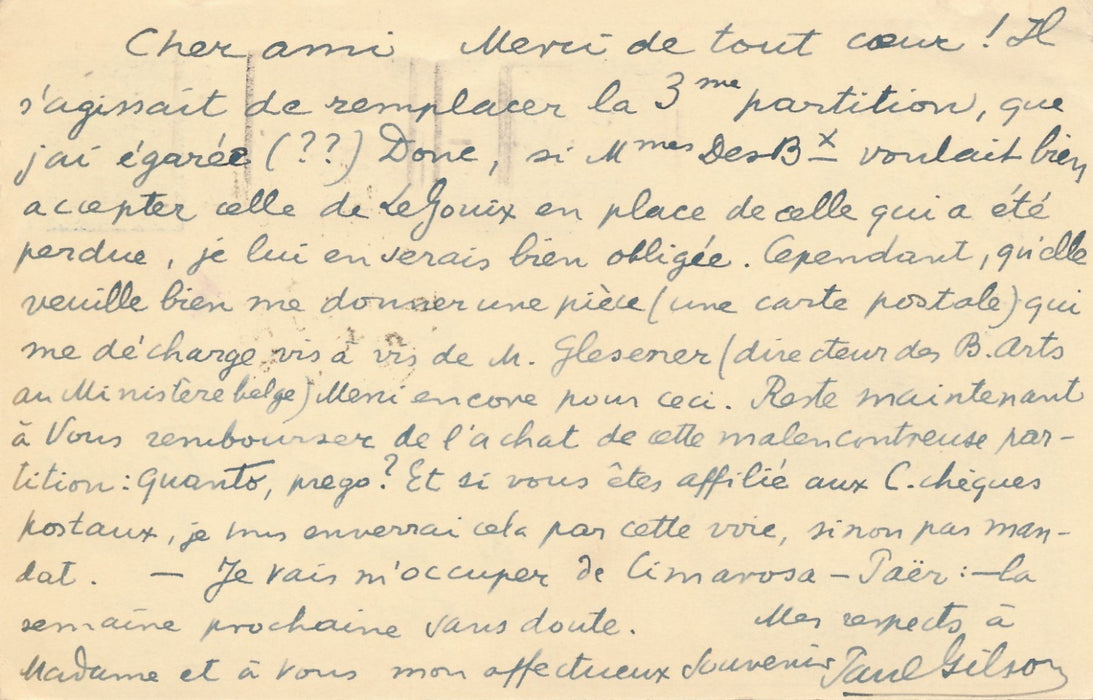 Cher ami Merci de tout cœur ! Il
s'agissait de remplacer la 3me partition, que
j'ai égarée (??) Donc, si Mmes DesBx voulait bien
accepter celle de LeGouix en place de celle qui a été
perdue, je lui en serais bien obligée. Cependant, qu'elle
veuille bien me donner une pièce (une carte postale) qui
me décharge vis à vis de M. Glesener (directeur des B. Arts
au Ministère belge) Merci encore pour ceci. Reste maintenant
à Vous rembourser de l'achat de cette malencontreuse par-
tition : Quanto, prego ? Et si vous êtes affilié aux C. chèques
postaux, je vous enverrai cela par cette voie, sinon pas man-
dat. — Je vais m'occuper de Cimarosa — Paër : — la
semaine prochaine sans doute. Mes respects à
Madame et à Vous mon affectueux Souvenir Paul Gilson